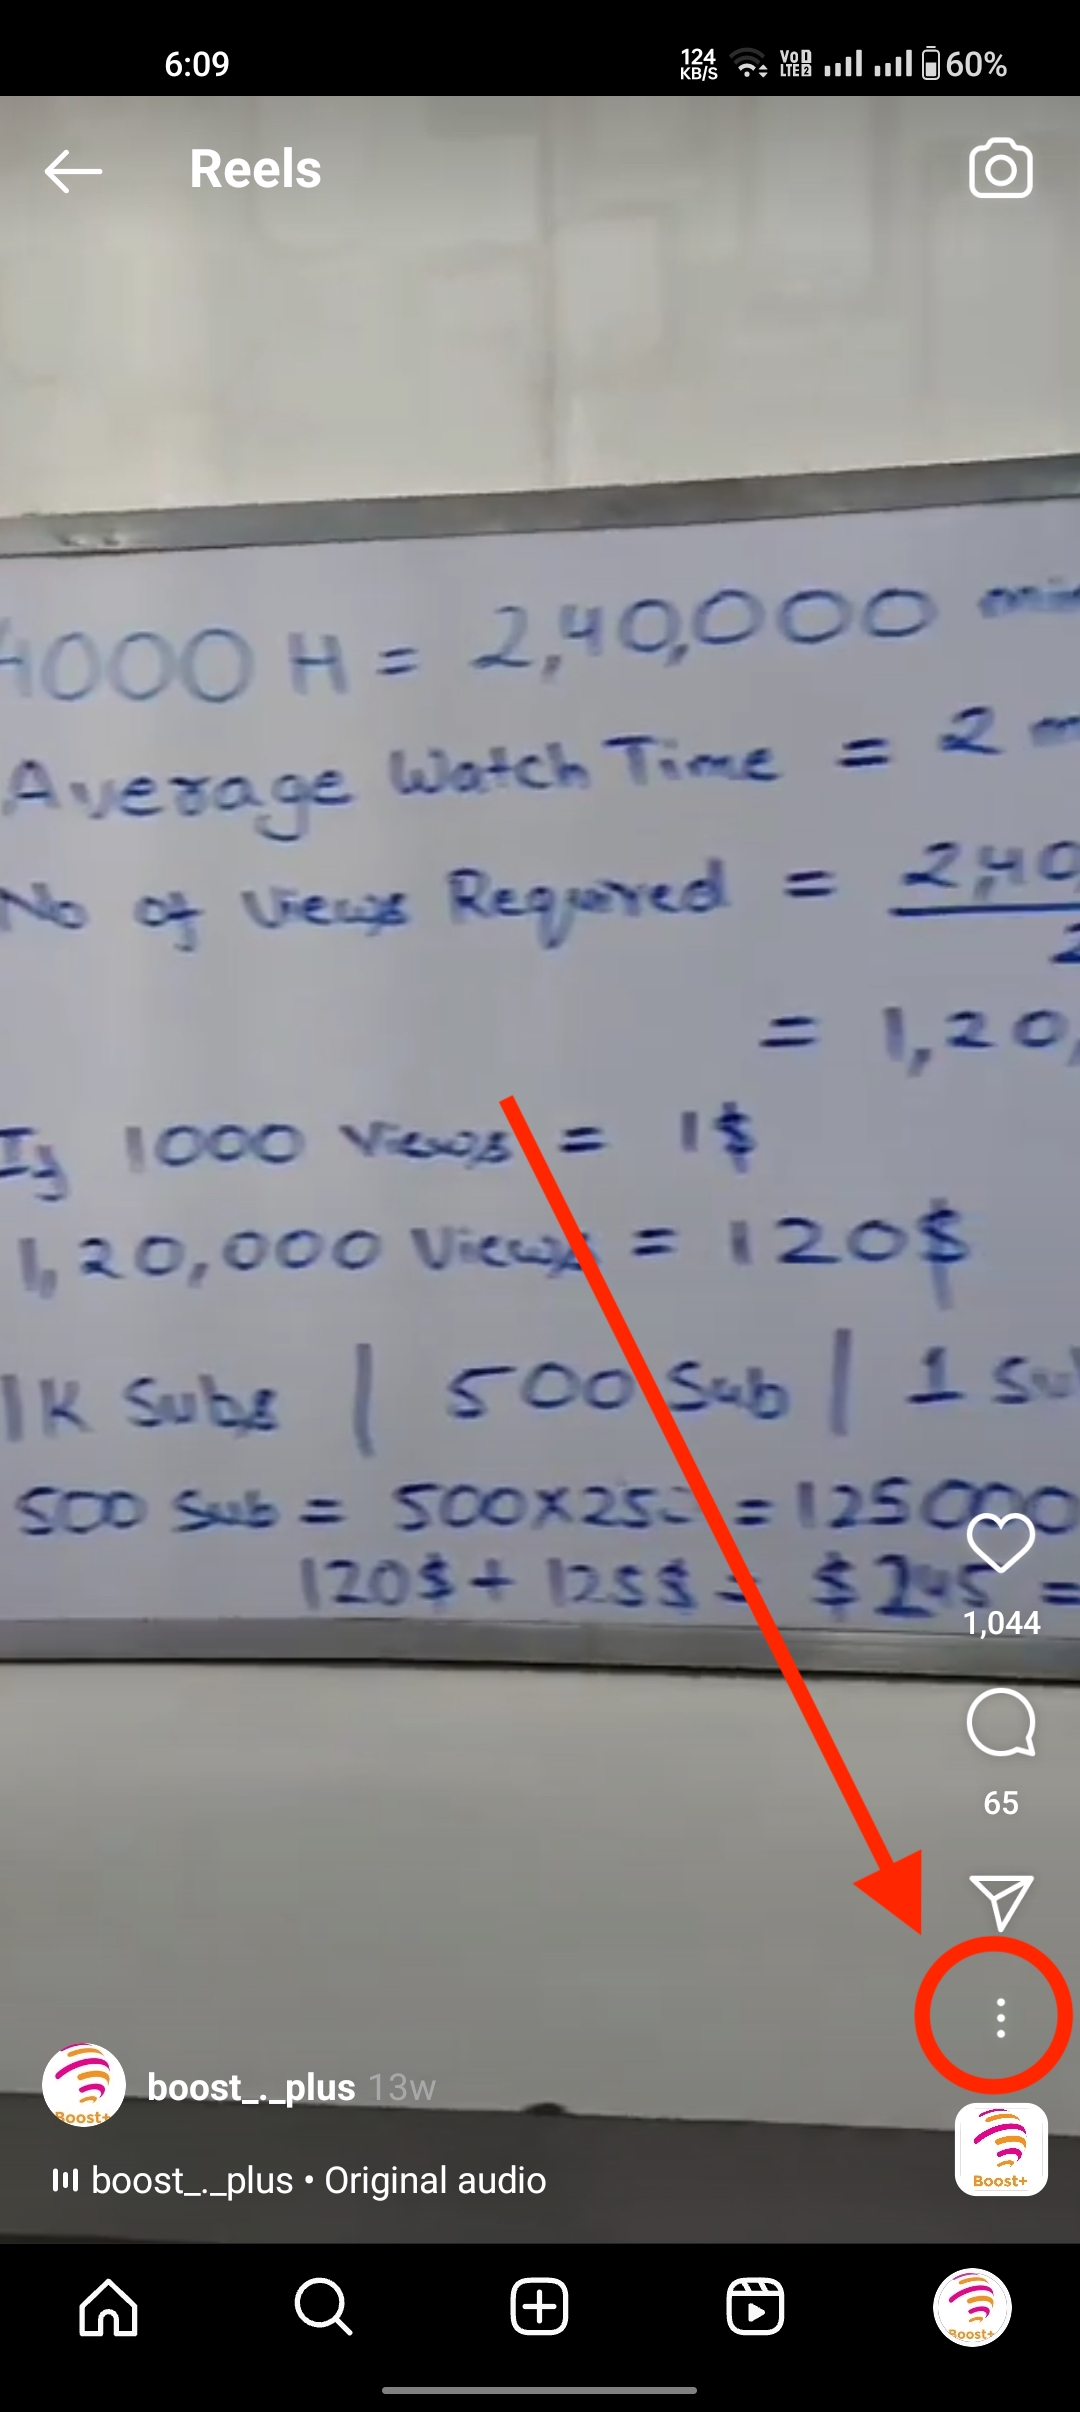 6:09
124 KB/S VoD LTE2 60%
Reels
4000 H = 2,40,000
Average Watch Time = 2
No of Views Required = 2,40,
2
= 1,20,
If 1000 Views = 1$
1,20,000 Views = 120$
1K Subs | 500 Sub | 1
500 Sub = 500x25 = 125000
120$ + 125$ = $245 =
1,044
65
boost_._plus 13w
Boost+
boost_._plus • Original audio
Boost+
Boost+